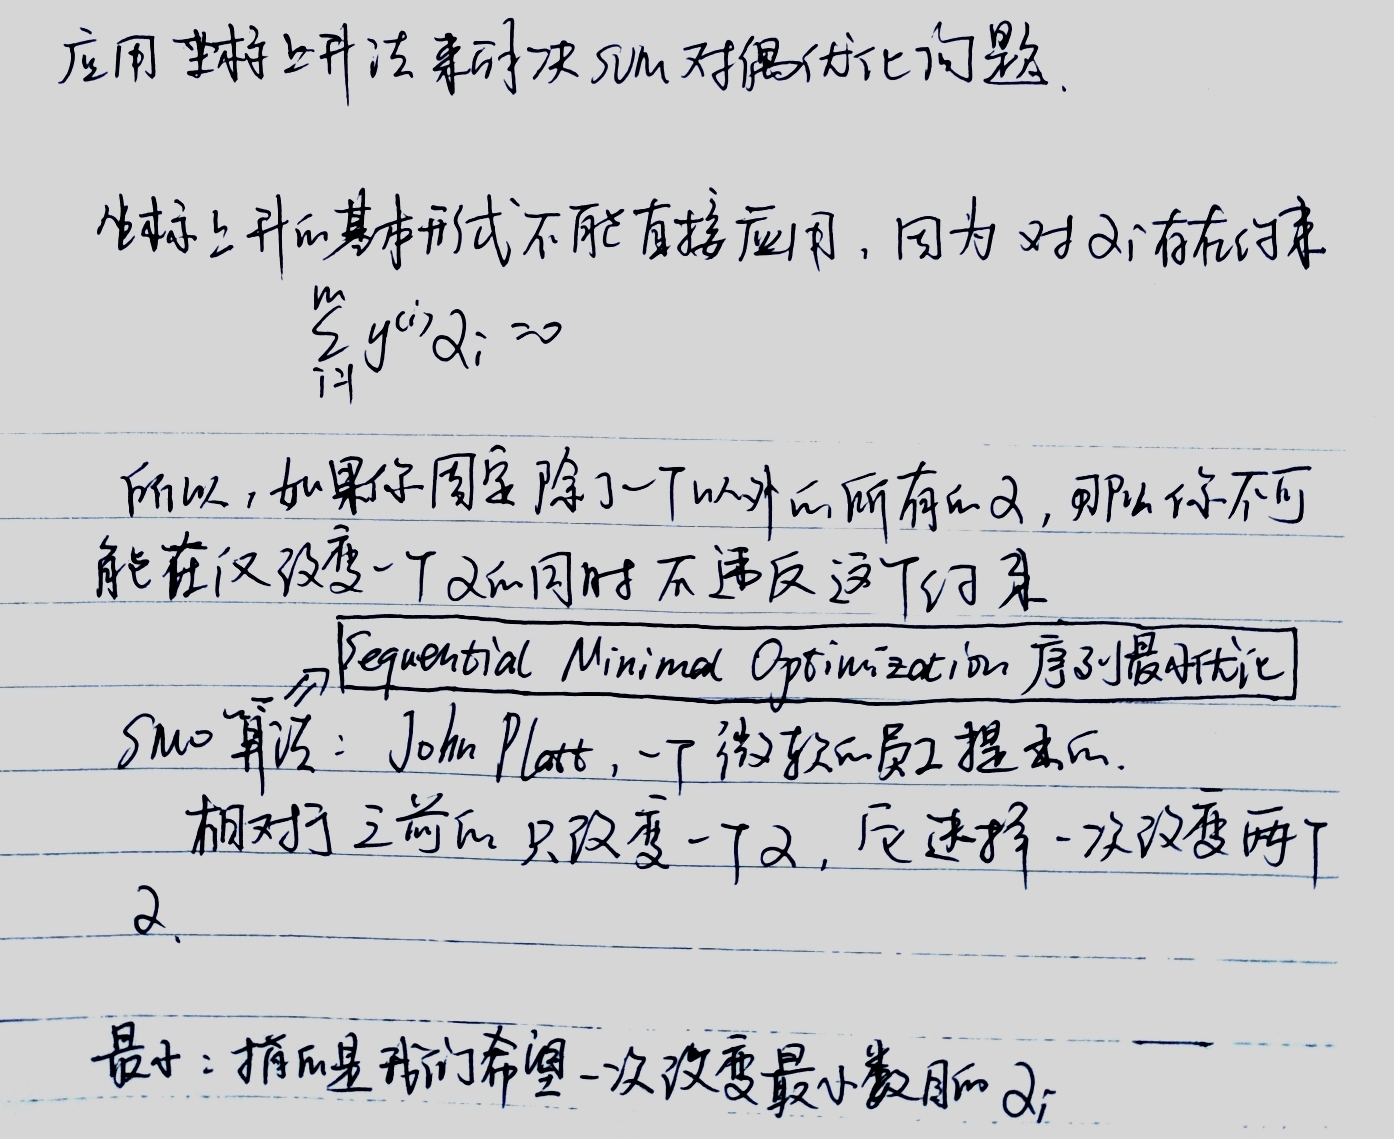 应用坐标上升法来解决SVM对偶优化问题.
坐标上升的基本形式不能直接应用,因为对αi存在约束
$\sum_{i=1}^{m} y^{(i)} α_i = 0$
所以,如果你固定除了一个以外的所有的α,那么你不可
能在仅改变一个α的同时不违反这个约束
Sequential Minimal Optimization 序列最小优化
SMO算法: John Platt,一个微软的员工提出的.
相对于之前的只改变一个α,它选择一次改变两个
α.
最小:指的是我们希望一次改变最小数目的αi